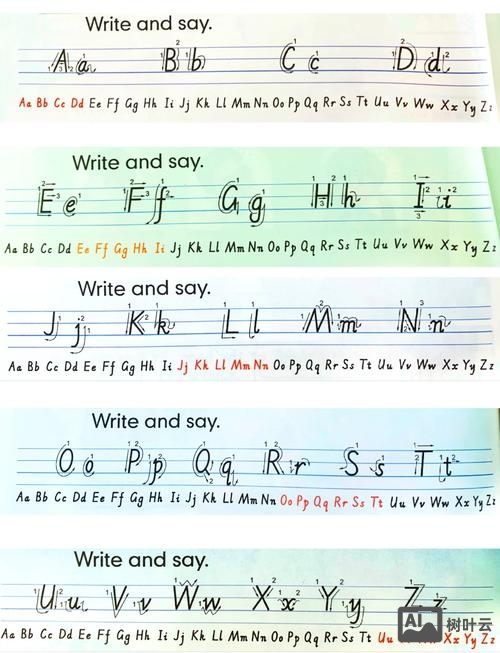 Write and say.
Aa Bb Cc Dd
Aa Bb Cc Dd Ee Ff Gg Hh Ii Jj Kk Ll Mm Nn Oo Pp Qq Rr Ss Tt Uu Vv Ww Xx Yy Zz
Write and say.
Ee Ff Gg Hh Ii
Aa Bb Cc Dd Ee Ff Gg Hh Ii Jj Kk Ll Mm Nn Oo Pp Qq Rr Ss Tt Uu Vv Ww Xx Yy Zz
Write and say.
Jj Kk Ll Mm Nn
Aa Bb Cc Dd Ee Ff Gg Hh Ii Jj Kk Ll Mm Nn Oo Pp Qq Rr Ss Tt Uu Vv Ww Xx Yy Zz
Write and say.
Oo Pp Qq Rr Ss Tt
Aa Bb Cc Dd Ee Ff Gg Hh Ii Jj Kk Ll Mm Nn Oo Pp Qq Rr Ss Tt Uu Vv Ww Xx Yy Zz
Write and say.
Uu Vv Ww Xx Yy Zz
AI 树叶云
Aa Bb Cc Dd Ee Ff Gg Hh Ii Jj Kk Ll Mm Nn Oo Pp Qq Rr Ss Tt Uu Zz